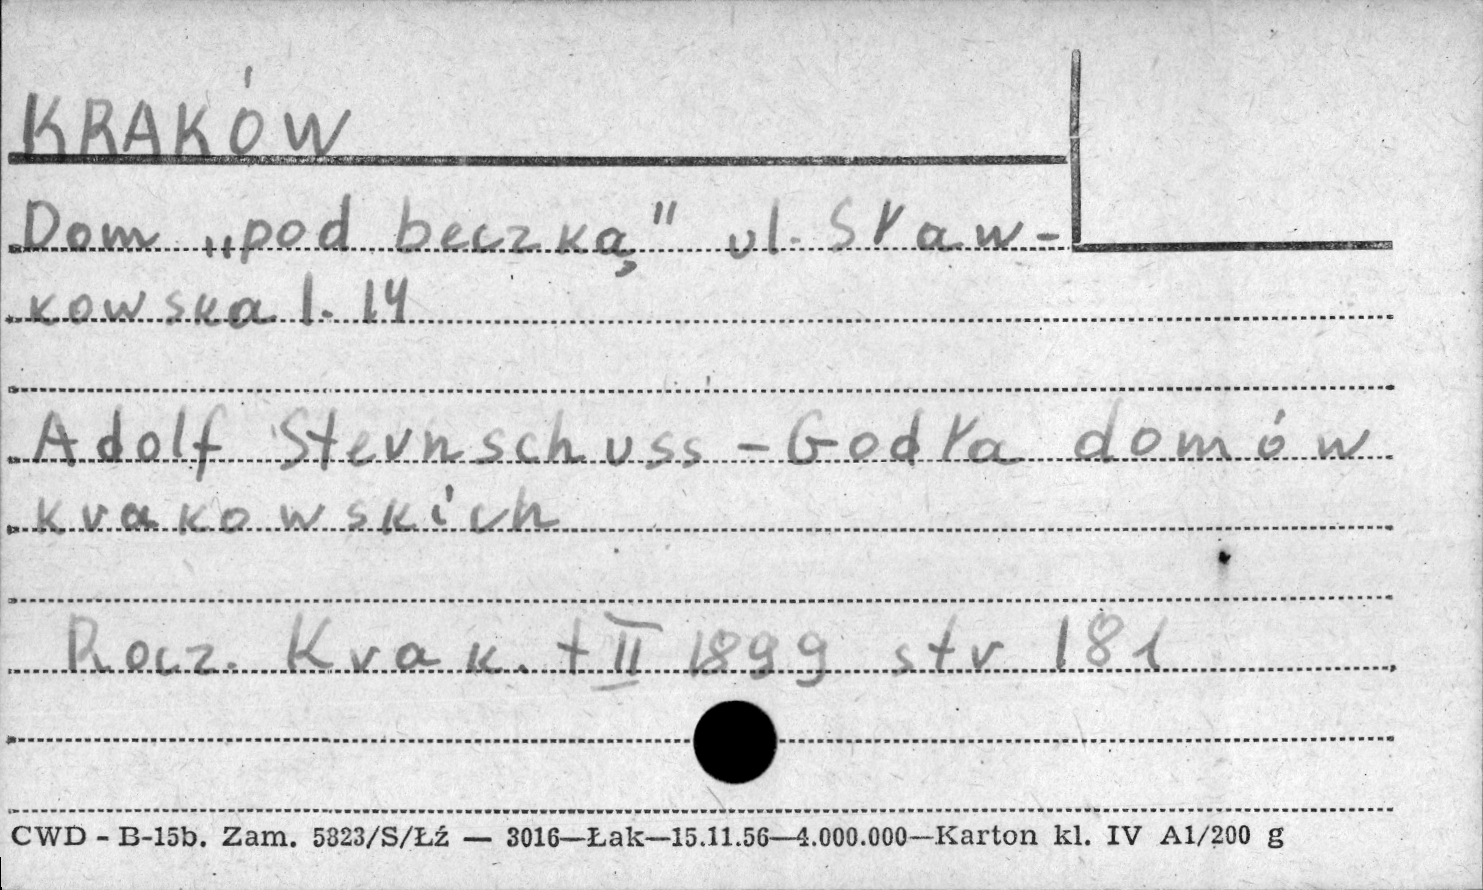 KRAKÓW
Dom „pod beczką" ul. Sław-
kowska l. 14
Adolf Sternschuss - Godła domów
krakowskich
Rocz. Krak. t II 1899 str 181
CWD - B-15b. Zam. 5823/S/Łź — 3016—Łak—15.11.56—4.000.000—Karton kl. IV A1/200 g